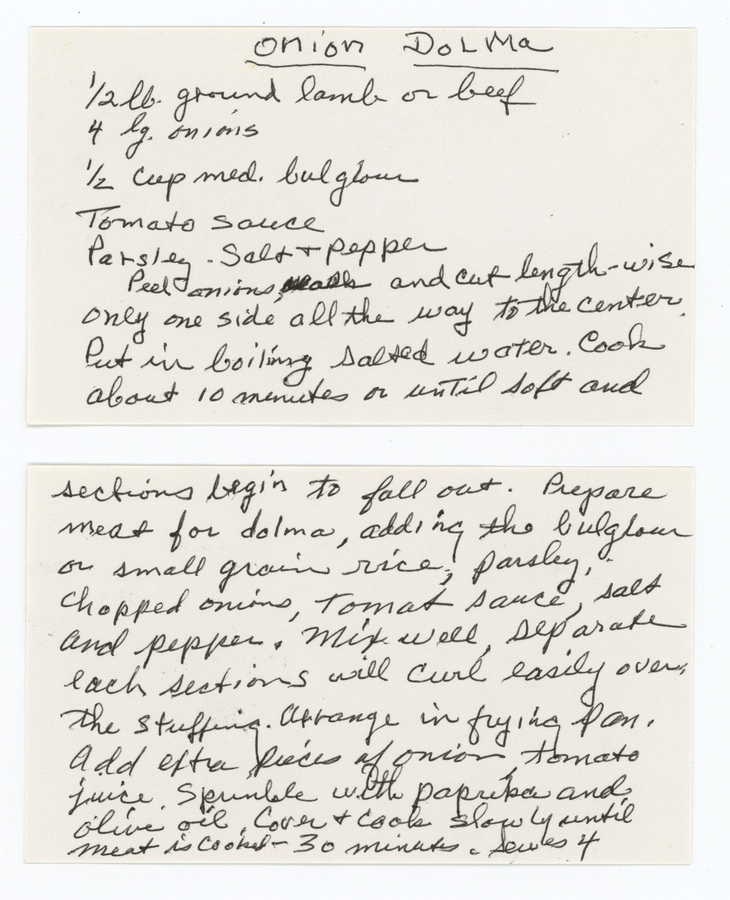 Onion Dolma
1/2 lb. ground lamb or beef
4 lg. onions
1/2 cup med. bulglour
Tomato sauce
Parsley - Salt + pepper
Peel onions, and cut length-wise
only one side all the way to the center.
Put in boiling salted water. Cook
about 10 minutes or until soft and
sections begin to fall out. Prepare
meat for dolma, adding the bulglour
or small grain rice, parsley,
chopped onions, Tomat sauce, salt
and pepper. Mix well, separate
each sections will curl easily over
the stuffing. Arrange in frying pan.
Add extra pieces of onion, tomato
juice. Sprinkle with paprika and
olive oil. Cover + cook slowly until
meat is cooked - 30 minutes. serves 4